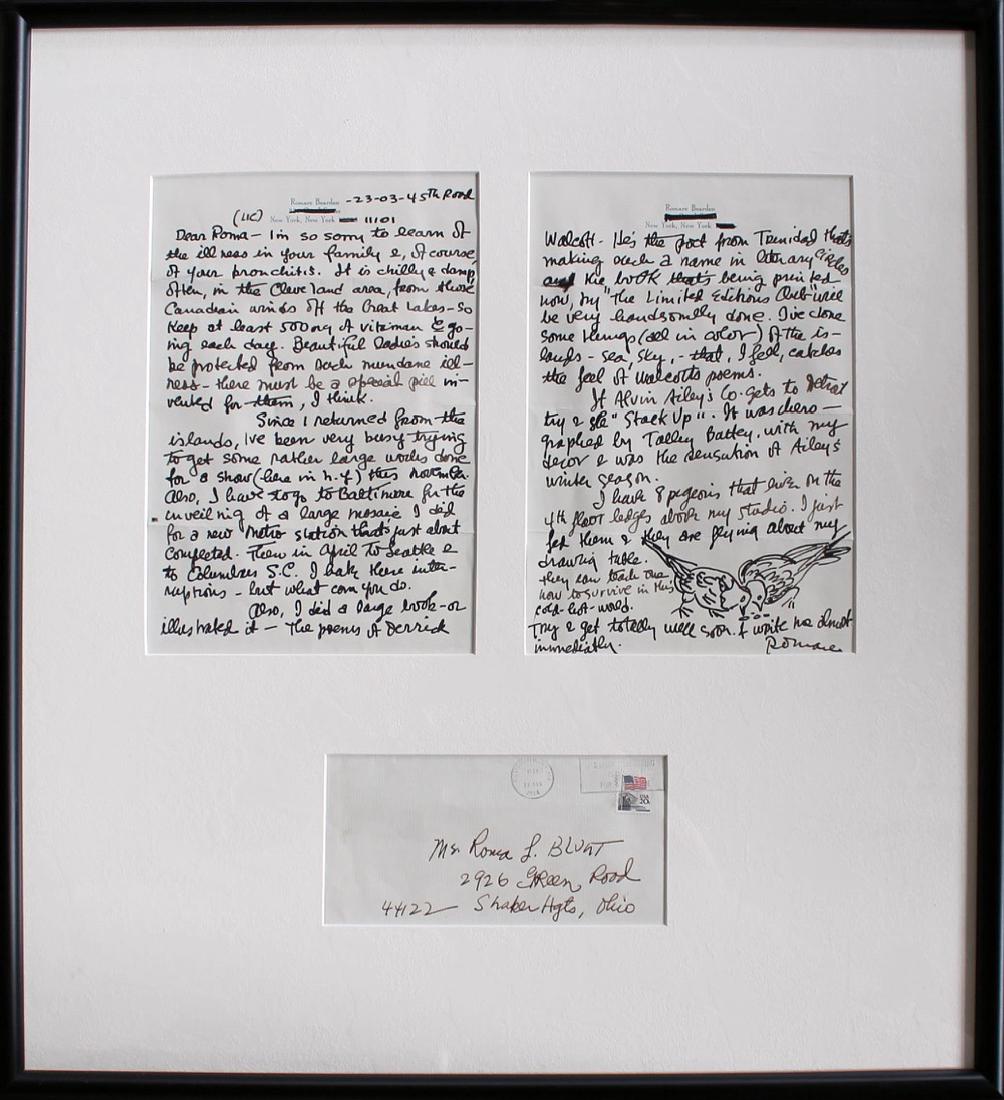 Romare Bearden -23-03-45th Road
(LIC) New York, New York 11101
Dear Roma- I'm so sorry to learn of
the illness in your family &, of course,
of your pronchitis. It is chilly & damp,
often, in the Cleveland area, from those
Canadian winds off the Great Lakes-so
keep at least 500mg of vitiman C go-
ing each day. Beautiful ladies should
be protected from such mundane ill-
ness- there must be a special pill in-
vented for them, I think.
Since I returned from the
islands, I've been very busy trying
to get some rather large works done
for a show (here in N.Y) this november.
Also, I have to go to Baltimore for the
unveiling of a large mosaic I did
for a new Metro station that's just about
completed. Then in April to Seattle &
to Columbus S.C. I hate these inter-
ruptions - but what can you do.
Also, I did a large book-or
illustrated it - The poems of Derrick
Romare Bearden
New York, New York
Walcott- He's the poet from Trinidad that's
making such a name in literary circles
and his book that's being printed
now, by "The Limited Editions Club" will
be very handsomely done. I've done
some things (all in color) of the is-
lands - sea, sky, - that, I feel, catches
the feel of Walcotts poems.
If Alvin Ailey's Co. gets to Detroit
try & see "Stack Up". It was choreo-
graphed by Talley Battey, with my
decor & was the sensation of Ailey's
winter season.
I have 8 pigeons that live on the
4th floor ledges above my studio. I just
fed them & they are flying about my
drawing table.
They can teach one
how to survive in this
cold-hot-world.
Try & get totally well soon. I write no almost
immediately. Romare
USA 20c
Ms. Roma L. BLUNT
2926 Green Road
44122 Shaker Hgts, Ohio